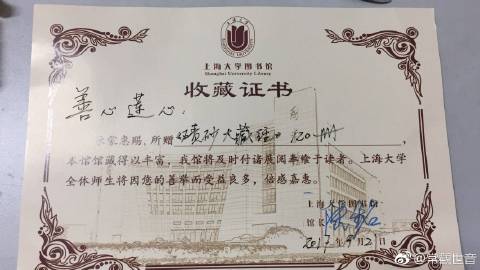 上海大学图书馆
Shanghai University Library
收藏证书
善心莲心：
承蒙惠赐、所赠《碛砂大藏经》120册
本馆馆藏得以丰富，我馆将及时付诸展阅奉飨于读者。上海大学
全体师生将因您的善举而受益良多，倍感嘉惠。
上海大学图书馆
馆长
2017年9月21日
@常觀世音